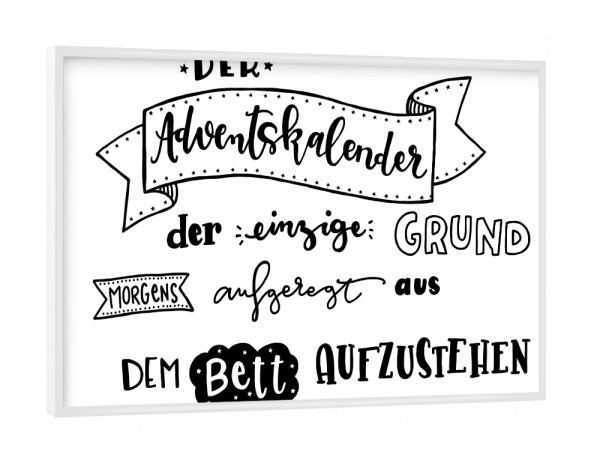 *DER*
Adventskalender
der einzige GRUND
MORGENS aufgeregt aus
DEM Bett AUFZUSTEHEN